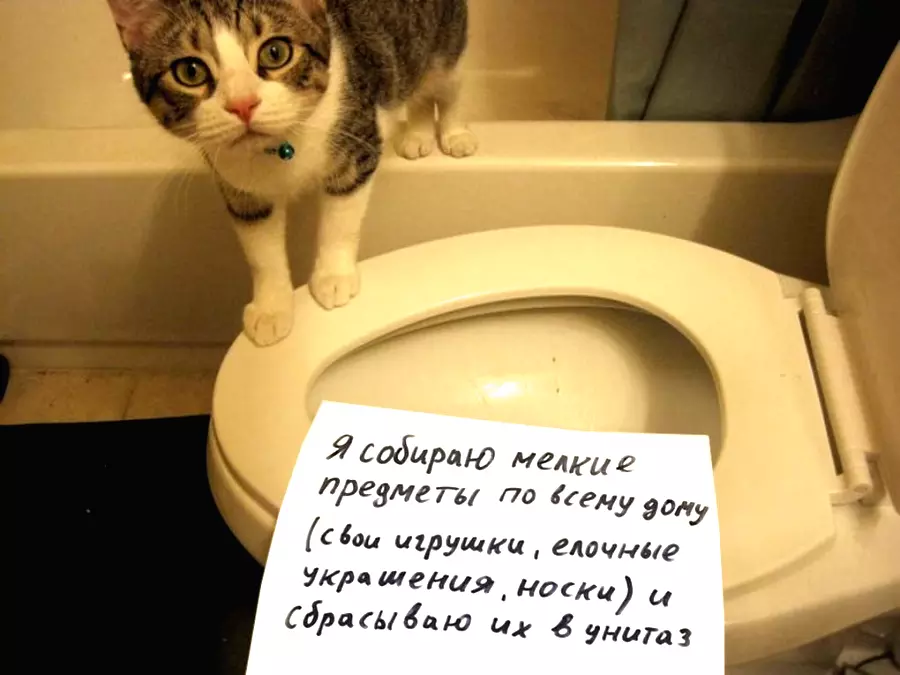 Я собираю мелкие
предметы по всему дому
(свои игрушки, елочные
украшения, носки) и
сбрасываю их в унитаз